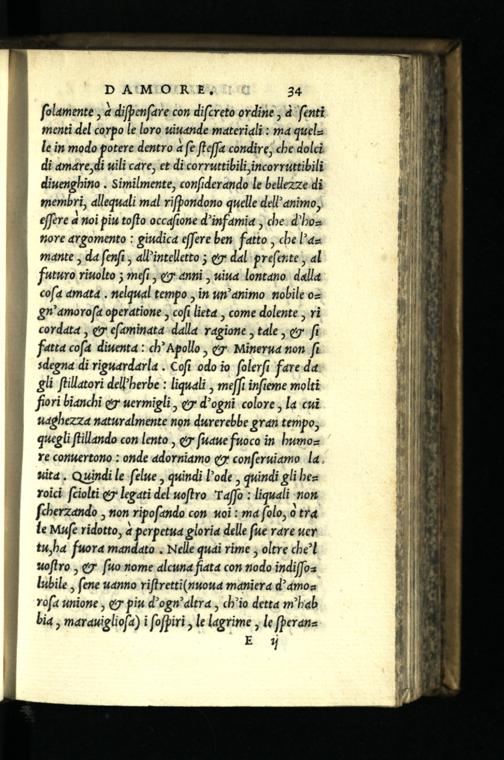 D AMORE. 34
solamente, à dispensare con discreto ordine, à senti
menti del corpo le loro viuande materiali: ma quel=
le in modo potere dentro à se stessa condire, che dolci
di amare, di uili care, et di corruttibili, incorruttibili
diuenghino. Similmente, considerando le bellezze di
membri, allequali mal rispondono quelle dell'animo,
essere à noi piu tosto occasione d'infamia, che d'ho=
nore argomento: giudica essere ben fatto, che l'a=
mante, da sensi, all'intelletto; & dal presente, al
futuro riuolto; mesi, & anni, uiua lontano dalla
cosa amata. nelqual tempo, in un'animo nobile o=
gn'amorosa operatione, cosi lieta, come dolente, ri
cordata, & esaminata dalla ragione, tale, & si
fatta cosa diuenta: ch'Apollo, & Minerua non si
sdegna di riguardarla. Cosi odo io solersi fare da
gli stillatori dell'herbe: liquali, messi insieme molti
fiori bianchi & uermigli, & d'ogni colore, la cui
uaghezza naturalmente non durerebbe gran tempo,
quegli stillando con lento, & suaue fuoco in humo=
re conuertono: onde adorniamo & conseruiamo la
uita. Quindi le selue, quindi l'ode, quindi gli he=
roici sciolti & legati del uostro Tasso: liquali non
scherzando, non riposando con uoi: ma solo, ò tra
le Muse ridotto, à perpetua gloria delle sue rare uer
tu, ha fuora mandato. Nelle quai rime, oltre che'l
uostro, & suo nome alcuna fiata con nodo indisso=
lubile, sene uanno ristretti (nuoua maniera d'amo=
rosa unione, & piu d'ogn'altra, ch'io detta m'hab
bia, marauigliosa) i sospiri, le lagrime, le speran=
E ij